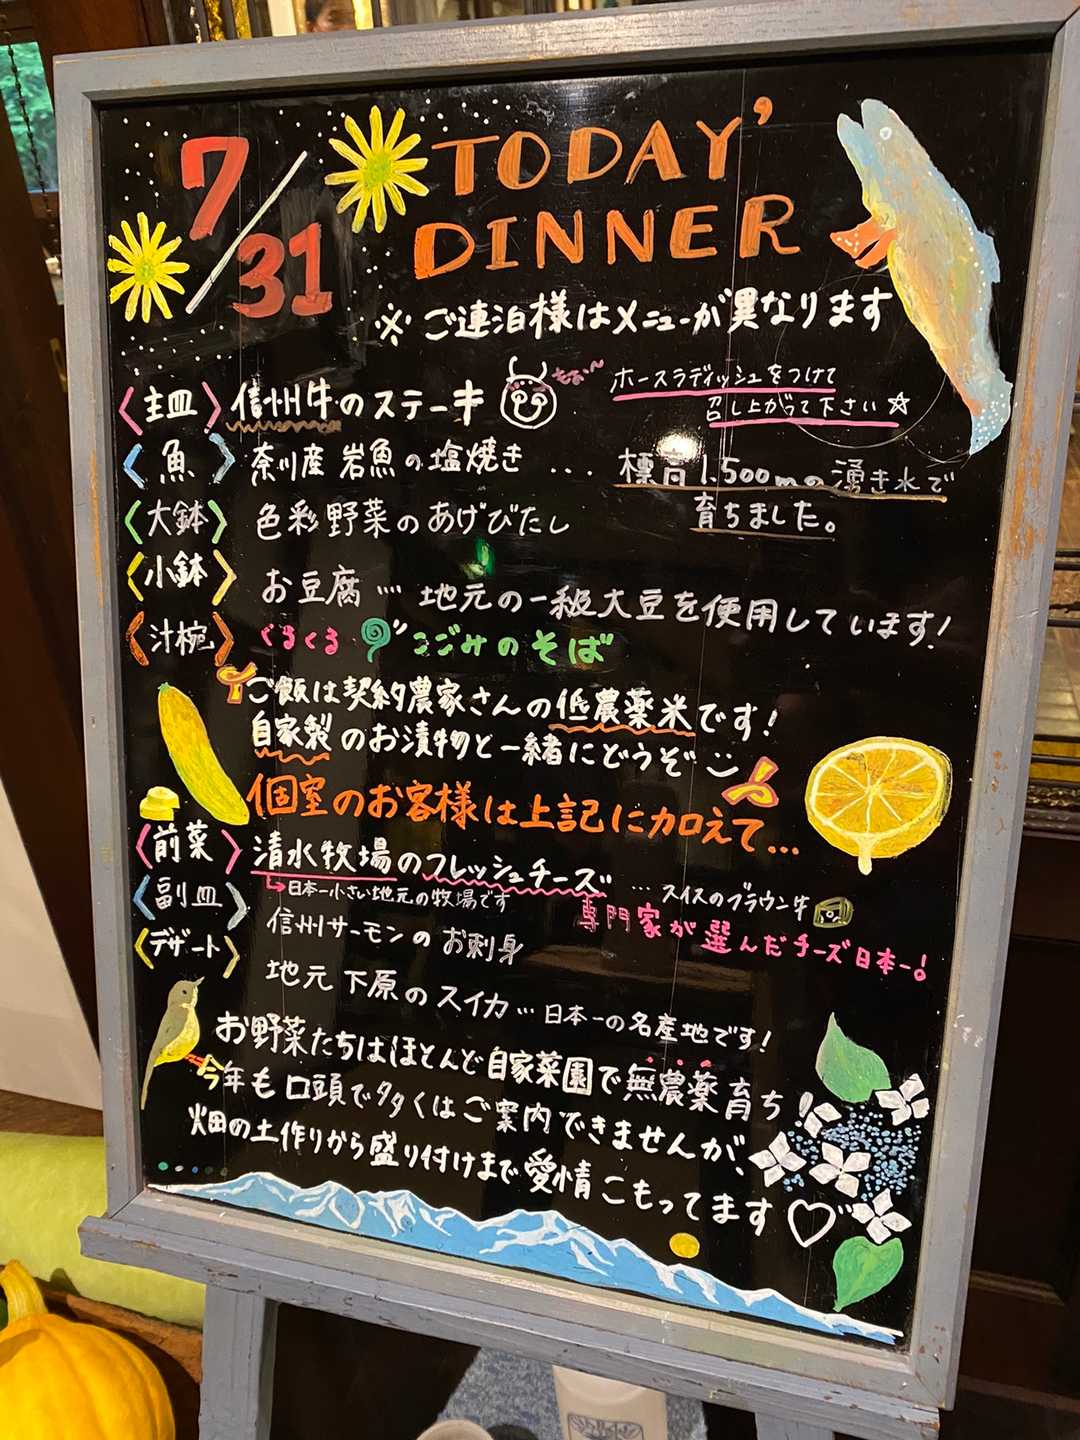 7/31 TODAY' DINNER
※ご連泊様はメニューが異なります
〈主皿〉 信州牛のステーキ ホースラディッシュをつけて
召し上がって下さい☆
〈魚〉 奈川産 岩魚の塩焼き .... 標高1,500mの湧き水で
育ちました。
〈大鉢〉 色彩野菜のあげびたし
〈小鉢〉 お豆腐 … 地元の一級大豆を使用しています!
〈汁椀〉 くるくる こごみのそば
ご飯は契約農家さんの低農薬米です!
自家製のお漬物と一緒にどうぞ
個室のお客様は上記に加えて...
〈前菜〉 清水牧場のフレッシュチーズ ... スイスのブラウン牛
↳日本一小さい地元の牧場です 専門家が選んだチーズ日本一!
〈副皿〉 信州サーモンのお刺身
〈デザート〉 地元 下原のスイカ … 日本一の名産地です!
お野菜たちはほとんど自家菜園で無農薬育ち!
今年も口頭で多くはご案内できませんが、
畑の土作りから盛り付けまで愛情こもってます♡